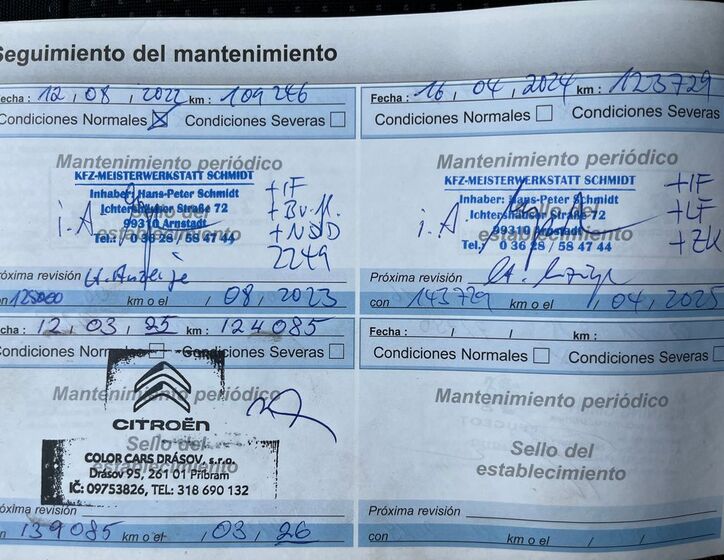 Seguimiento del mantenimiento
Fecha : 12 , 08 , 2022 km : 109246
Condiciones Normales ☒ Condiciones Severas ☐
Mantenimiento periódico
KFZ-MEISTERWERKSTATT SCHMIDT
Inhaber: Hans-Peter Schmidt
Ichtershäuser Straße 72
99310 Arnstadt
Tel.: 0 36 28 / 58 47 44
Sello del
establecimiento
i.A
+IF
+Bv.fl.
+NSD
2249
Próxima revisión lt. Anzeige
con 125000 km o el / 08 / 2023
Fecha : 16 , 04 , 2024 km : 123729
Condiciones Normales ☐ Condiciones Severas
Mantenimiento periódico
KFZ-MEISTERWERKSTATT SCHMIDT
Inhaber: Hans-Peter Schmidt
Ichtershäuser Straße 72
99310 Arnstadt
Tel.: 0 36 28 / 58 47 44
Sello del
establecimiento
i.A
+IF
+LF
+ZK
Próxima revisión lt. Anzeige
con 143729 km o el / 04 , 2025
Fecha : 12 , 03 , 25 km : 124085
Condiciones Normales ☐ Condiciones Severas ☐
Mantenimiento periódico
CITROËN
Sello del
establecimiento
COLOR CARS DRÁSOV, s.r.o.
Drásov 95, 261 01 Příbram
IČ: 09753826, TEL: 318 690 132
Próxima revisión
139085 km o el / 03 / 26
Fecha : / / km :
Condiciones Normales ☐ Condiciones Severas ☐
Mantenimiento periódico
Sello del
establecimiento
Próxima revisión
con km o el / /